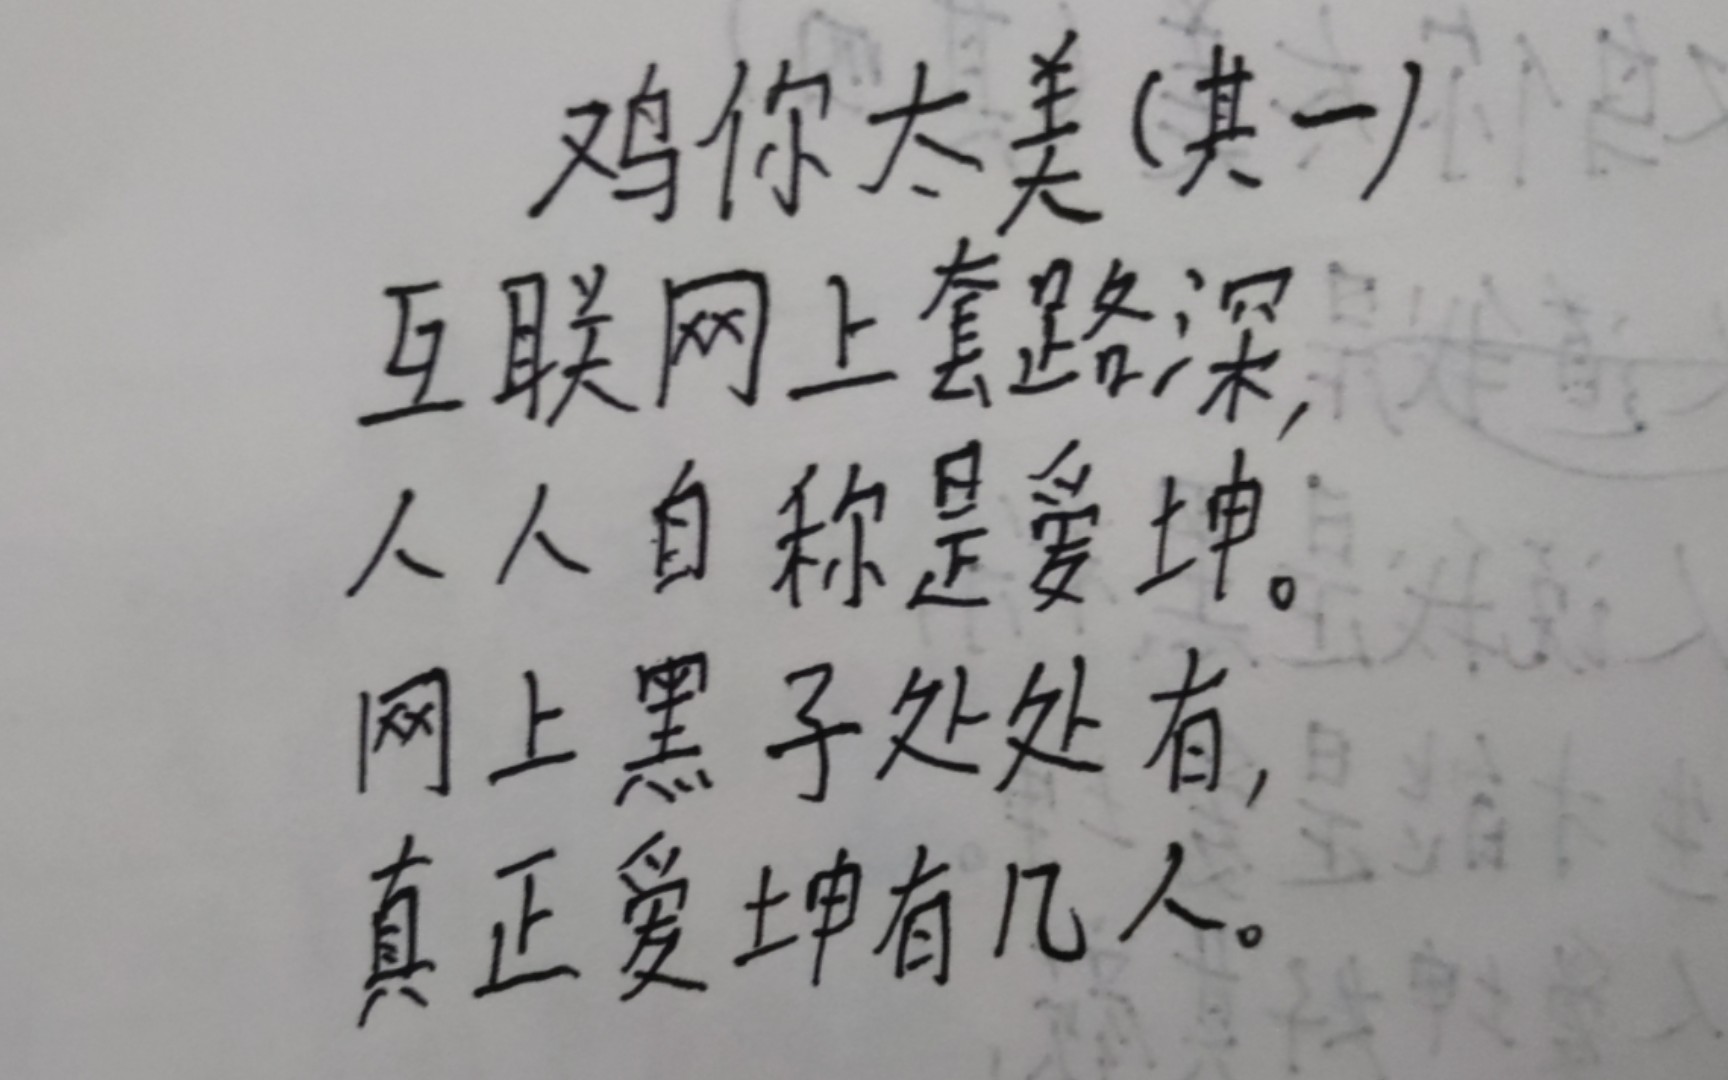 鸡你太美(其一)
互联网上套路深,
人人自称是爱坤。
网上黑子处处有,
真正爱坤有几人。